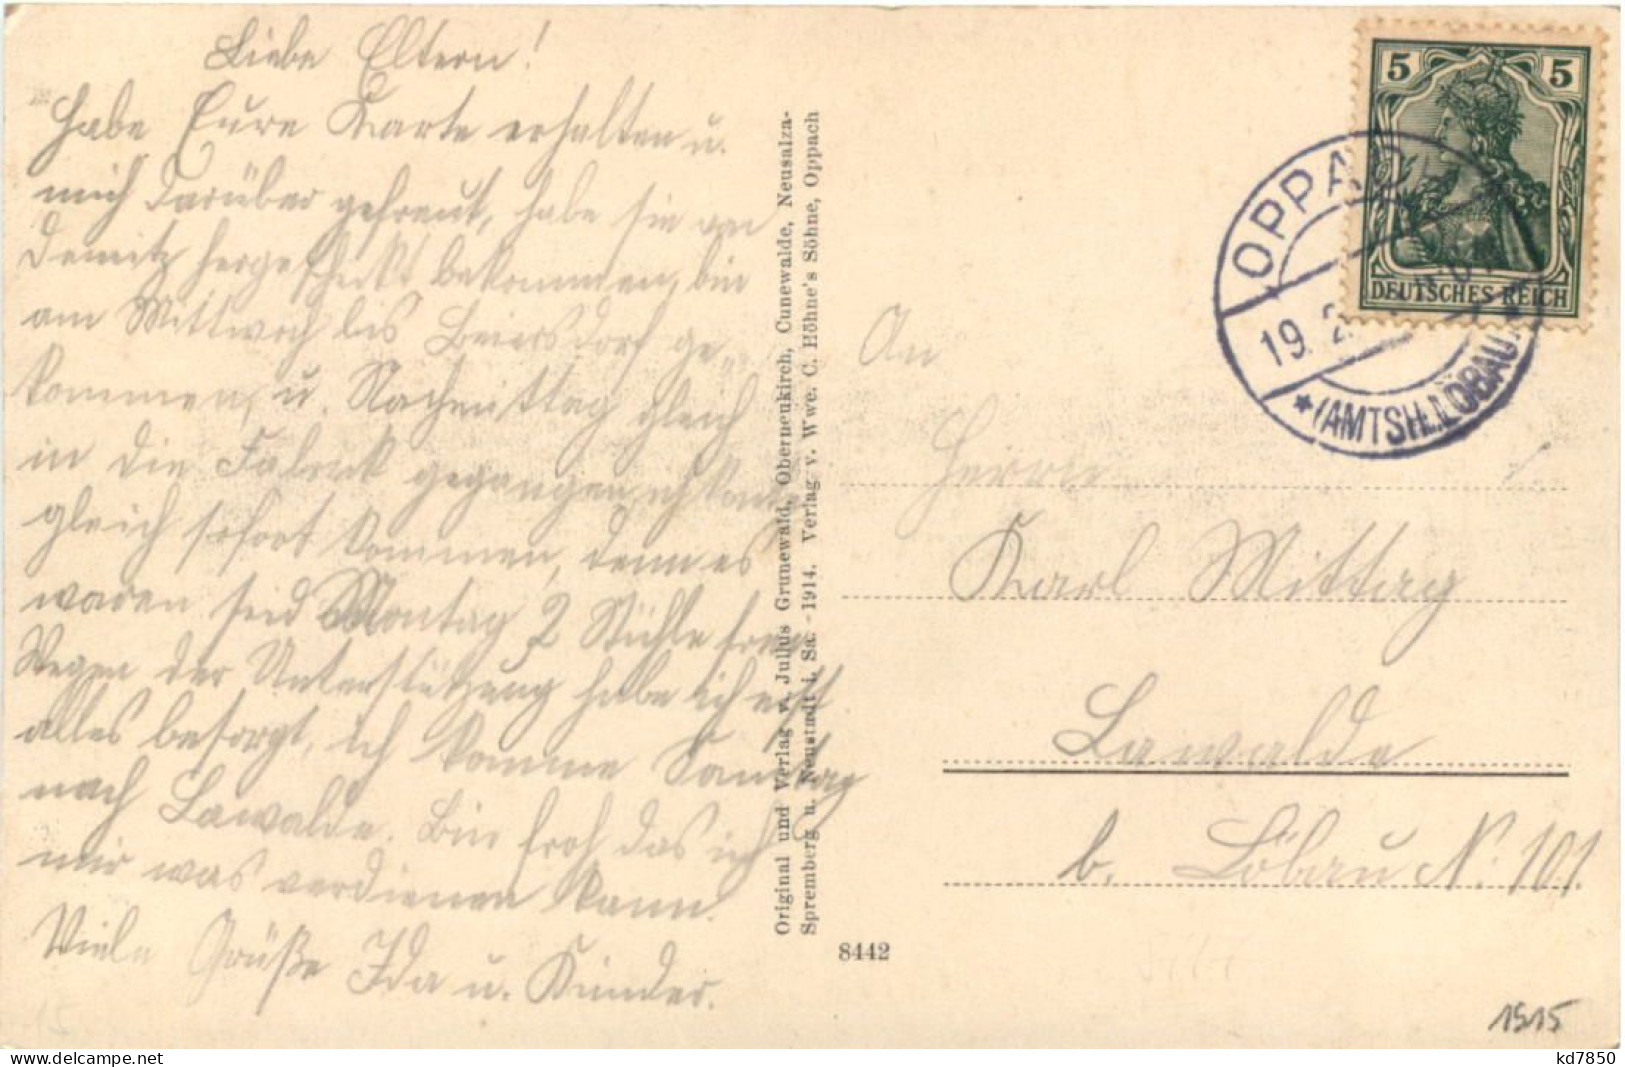 Liebe Eltern!
Habe Eure Karte erhalten u.
mich darüber gefreut, habe sie von
Demitz hergeschickt bekommen, bin
am Mittwoch bis Beiersdorf ge-
kommen, u. Nachmittag gleich
in die Fabrick gegangen, ich konnte
gleich sofort kommen, denn es
waren seid Montag 2 Stühle frei
Wegen der Unterstützung habe ich erst
alles besorgt, ich komme Sonntag
nach Lawalde. Bin froh das ich
mir was verdienen kann.
Viele Grüße Ida u. Kinder.
Original und Verlag v. Julius Grunewald, Oberneukirch, Cunewalde, Neusalza-
Spremberg u. Neustadt i. Sa. - 1914. Verlag v. Wwe. C. Höhne's Söhne, Oppach
8442
5 5
DEUTSCHES REICH
OPPACH
19. 2.
* (AMTSH. LÖBAU)
An
Herrn
Karl Mittag
Lawalde
b. Löbau N. 101.
1515
kd7850